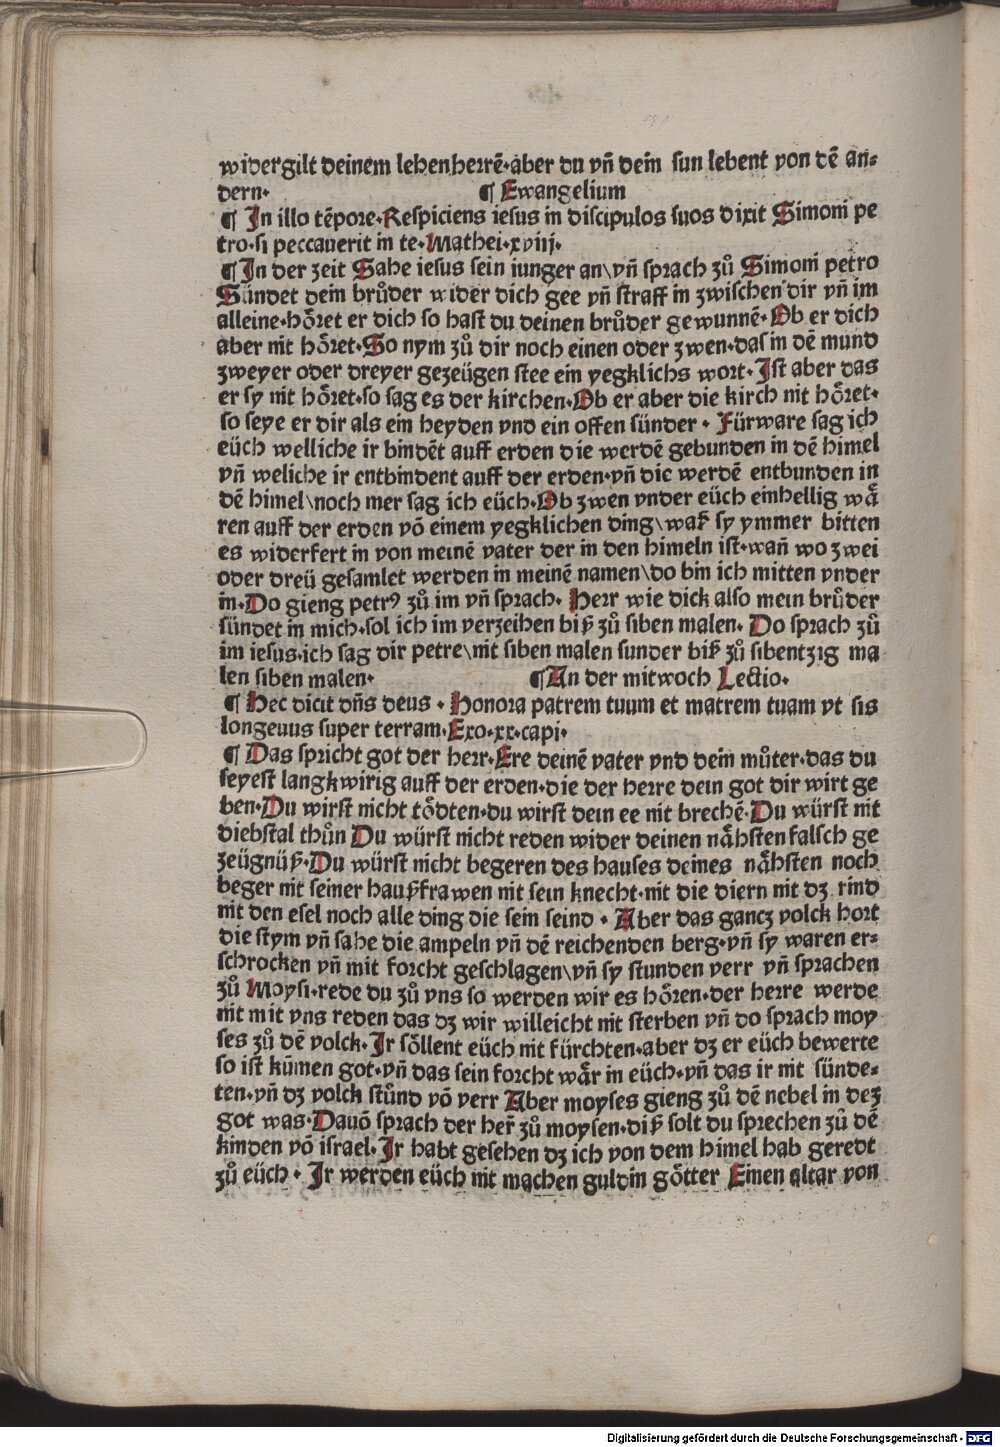 widergilt deinem lehenherrē·aber du vn̄ dein̄ sun lebent von dē an⸗
dern· ¶ Ewangelium
¶ In illo tēpore·Respiciens iesus in discipulos suos dixit Simoni pe
tro·si peccauerit in te·Mathei·xviij·
¶ In der zeit Sahe iesus sein iunger an\vn̄ sprach zů Simoni petro
Sündet dein brůder wider dich gee vn̄ straff in zwischen dir vn̄ im
alleine·höret er dich so hast du deinen brůder gewunnē·Ob er dich
aber nit höret·So nym zů dir noch einen oder zwen·das in dē mund
zweyer oder dreyer gezeügen stee ein yegklichs wort·Ist aber das
er sy nit höret·so sag es der kirchen·Ob er aber die kirch nit höret·
so seye er dir als ein heyden vnd ein offen sünder·Fürware sag ich
eüch welliche ir bindēt auff erden die werdē gebunden in dē himel
vn̄ weliche ir entbindent auff der erden·vn̄ die werdē entbunden in
dē himel\noch mer sag ich eüch·Ob zwen vnder eüch einhellig wä
ren auff der erden vō einem yegklichen ding\waß sy ymmer bitten
es widerfert in von meinē vater der in den himeln ist·wan̄ wo zwei
oder dreü gesamlet werden in meinē namen\do bin ich mitten vnder
in·Do gieng petrꝰ zů im vn̄ sprach·Herr wie dick also mein brůder
sündet in mich·sol ich im verzeihen biß zů siben malen·Do sprach zů
im iesus·ich sag dir petre\nit siben malen sunder biß zů sibentzig ma
len siben malen· ¶An der mitwoch Lectio·
¶ Hec dicit dn̄s deus·Honora patrem tuum et matrem tuam vt sis
longeuus super terram·Exo·xx·capi·
¶ Das spricht got der herr·Ere deinē vater vnd dein můter·das du
seyest langkwirig auff der erden·die der herre dein got dir wirt ge
ben·Du wirst nicht tödten·du wirst dein ee nit brechē·Du würst nit
diebstal thůn Du würst nicht reden wider deinen nähsten falsch ge
zeügnüß·Du würst nicht begeren des hauses deines nähsten noch
beger nit seiner haußfrawen nit sein knecht·nit die diern nit dz rind
nit den esel noch alle ding die sein seind·Aber das gancz volck hort
die stym vn̄ sahe die ampeln vn̄ dē reichenden berg·vn̄ sy waren er⸗
schrocken vn̄ mit forcht geschlagen\vn̄ sy stunden verr vn̄ sprachen
zů Moysi·rede du zů vns so werden wir es hören·der herre werde
nit mit vns reden das dz wir willeicht nit sterben vn̄ do sprach moy
ses zů dē volck·Ir söllent eüch nit fürchten·aber dz er eüch bewerte
so ist kūmen got·vn̄ das sein forcht wär in eüch·vn̄ das ir nit sünde⸗
ten·vn̄ dz volck stůnd vō verr Aber moyses gieng zů dē nebel in dez
got was·Dauō sprach der her̄ zů moysen·diß solt du sprechen zů dē
kinden vō israel·Ir habt gesehen dz ich von dem himel hab geredt
zů eüch·Ir werden eüch nit machen guldin götter Einen altar von
Digitalisierung gefördert durch die Deutsche Forschungsgemeinschaft - DFG